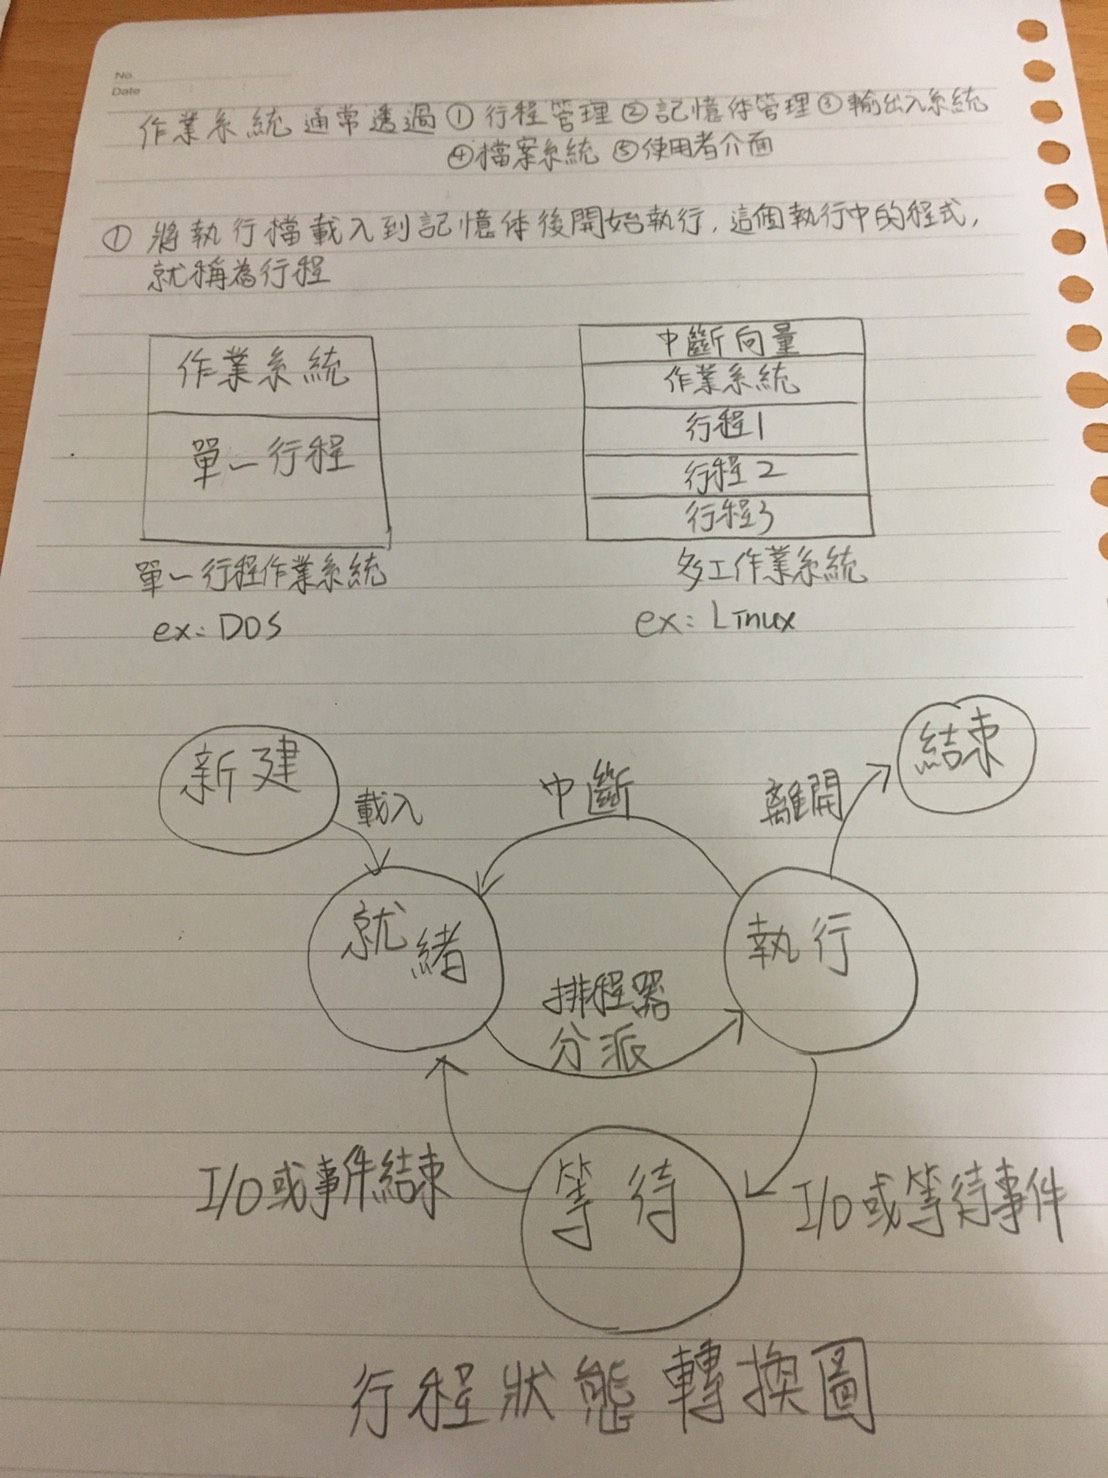 No.
Date
作業系統通常透過①行程管理②記憶体管理③輸出入系統
④檔案系統 ⑤使用者介面
① 將執行檔載入到記憶体後開始執行,這個執行中的程式,
就稱為行程
作業系統
單一行程
單一行程作業系統
ex: DOS
中斷向量
作業系統
行程1
行程2
行程3
多工作業系統
ex: Linux
新建
載入
中斷
離開
結束
就緒
執行
排程器
分派
I/O或事件結束
等待
I/O或等待事件
行程狀態轉換圖